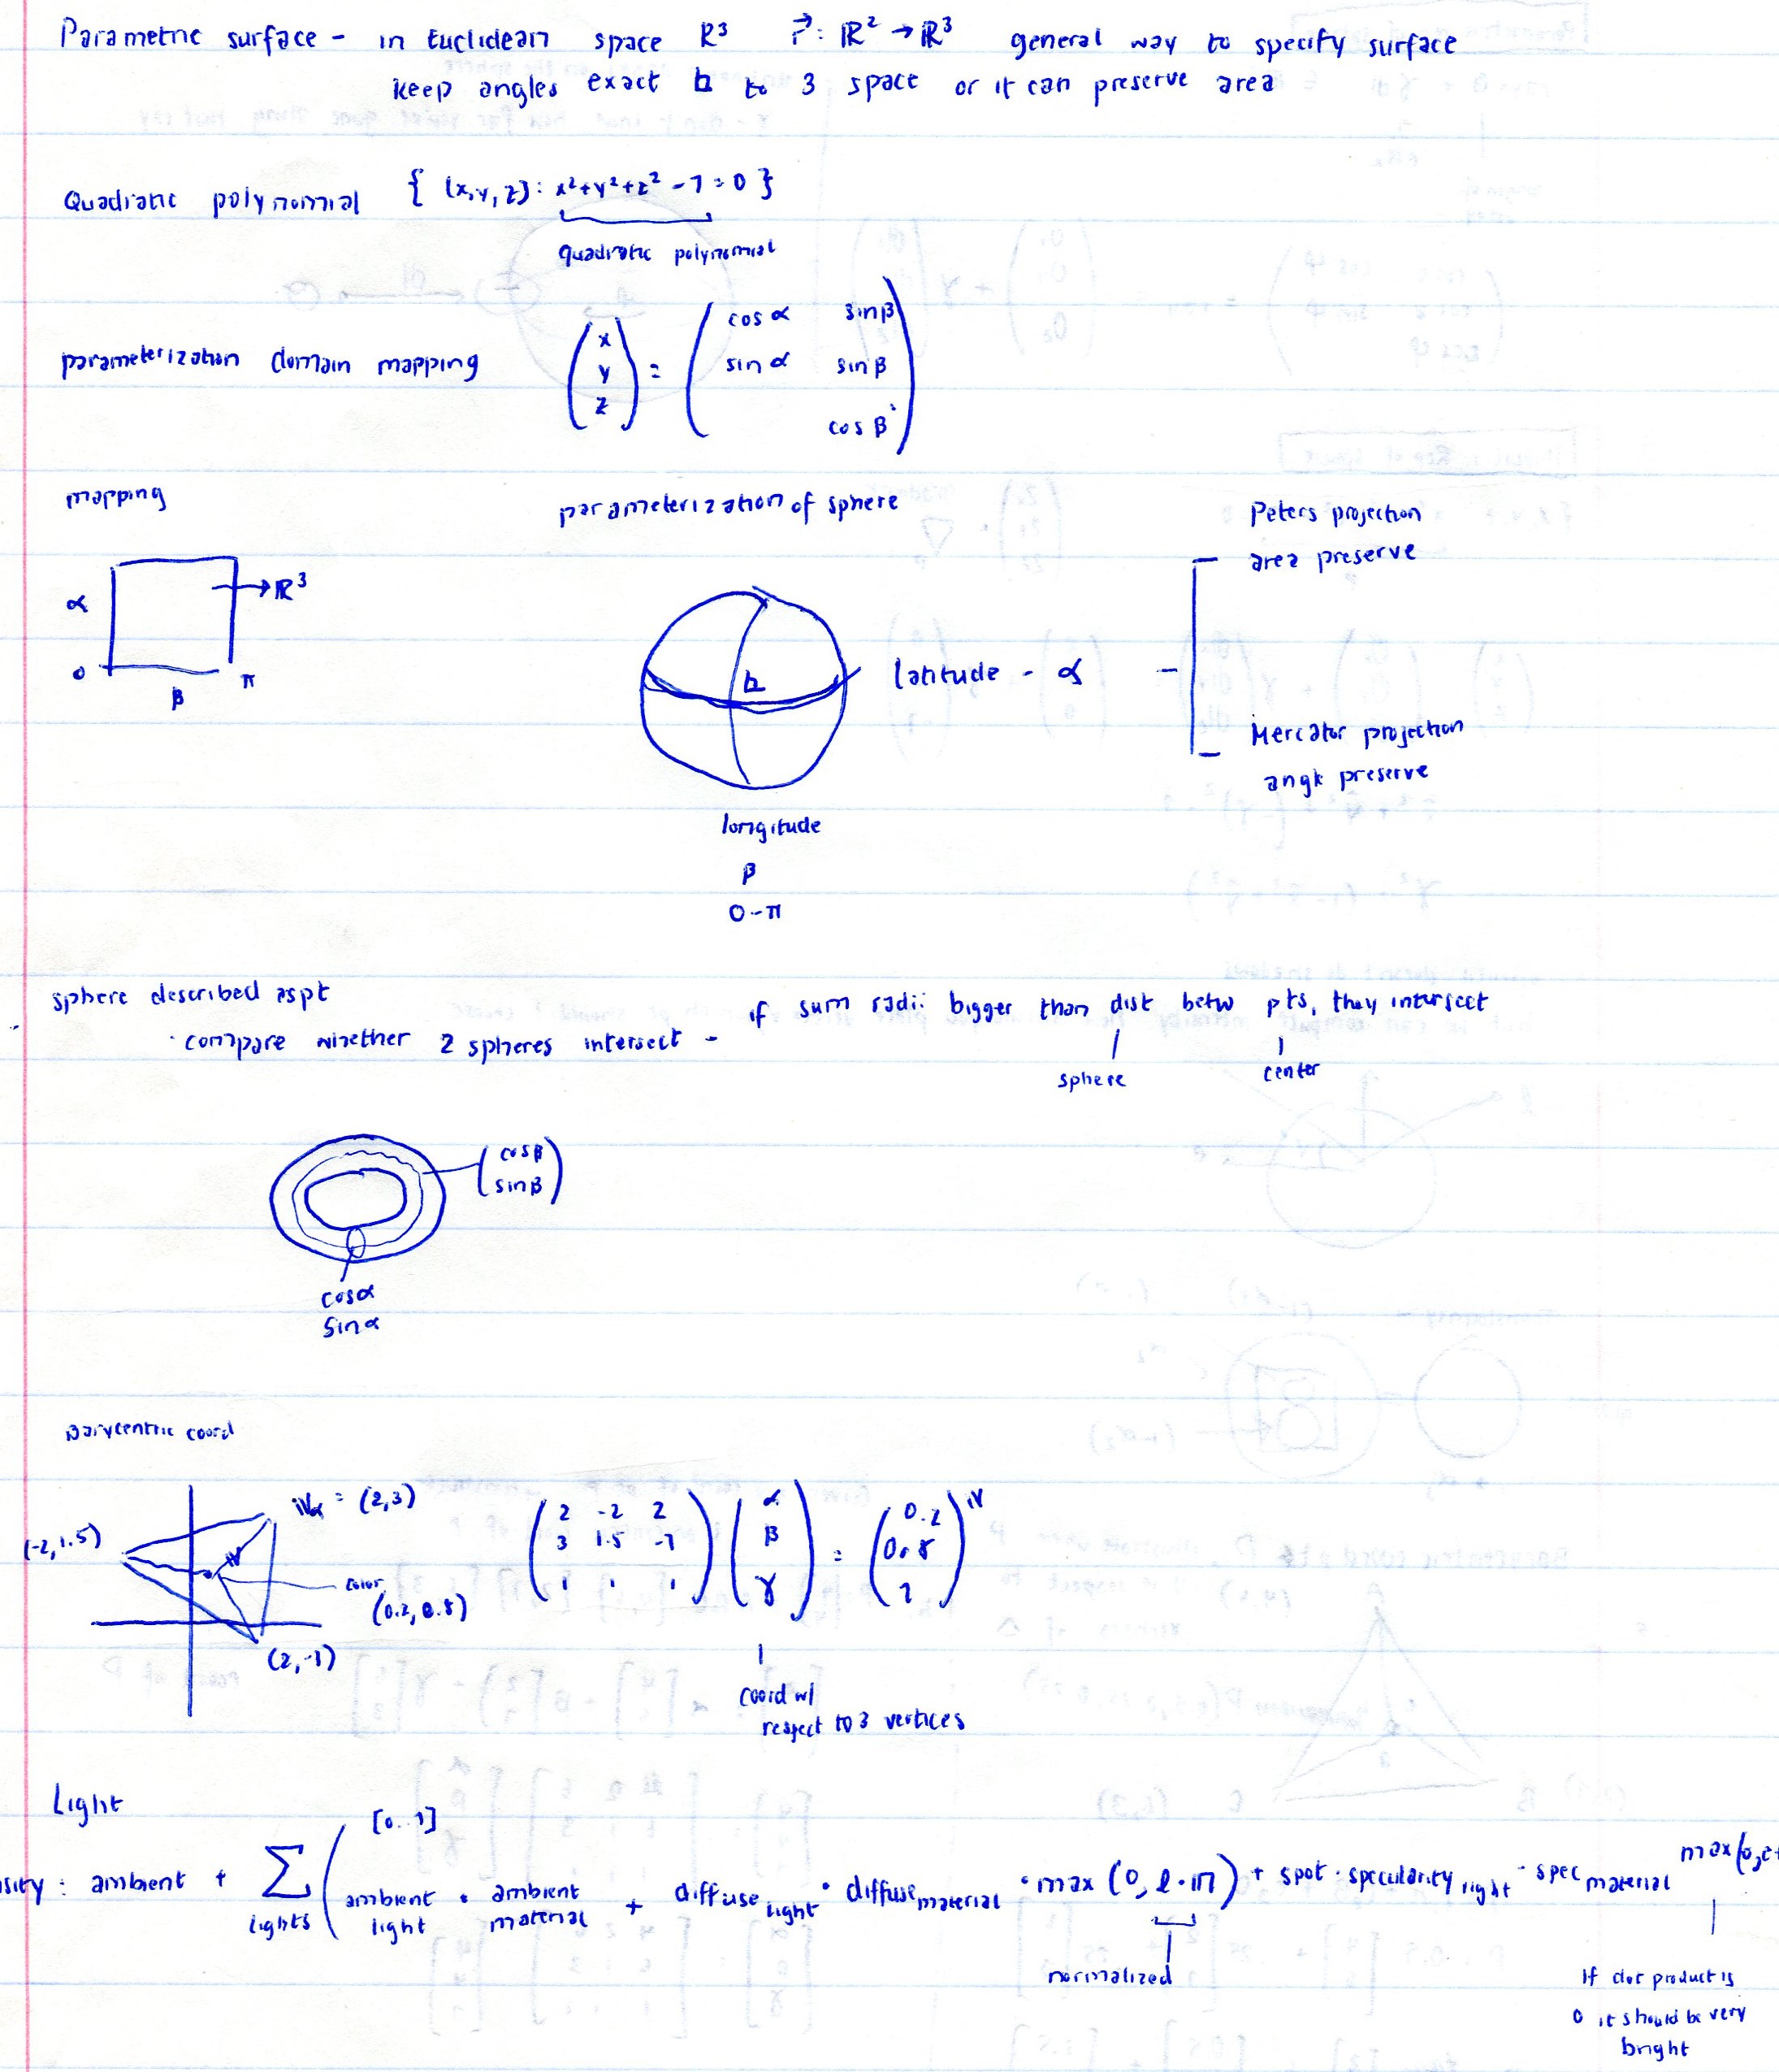 Parametric surface - in Euclidean space ℝ³ r⃗: ℝ² → ℝ³ general way to specify surface
keep angles exact b to 3 space or it can preserve area
Quadratic polynomial { (x,y,z): x²+y²+z² -1 = 0 }
quadratic polynomial
parameterization domain mapping (x y z) = (cos α sin β
sin α sin β
cos β)
mapping
parameterization of sphere
Peters projection
area preserve
α
→ ℝ³
0
β
π
b
latitude - α
Mercator projection
angle preserve
longitude
β
0-π
sphere described as pt
· compare whether 2 spheres intersect - if sum radii bigger than dist betw pts, they intersect
sphere
center
(cosβ
sinβ)
cosα
sinα
Barycentric coord
(-2,1.5)
Vα = (2,3)
V
color
(0.2, 0.8)
(2,-1)
(2 -2 2
3 1.5 -1
1 1 1) (α β γ) = (0.2 0.8 1) V
coord w/
respect to 3 vertices
Light
[0..1]
sity: ambient + Σ lights (ambient light · ambient material + diffuse light · diffuse material · max (0, l·n) + spot · specularity light · spec material max(0,
normalized
If dot product is
0 it should be very
bright